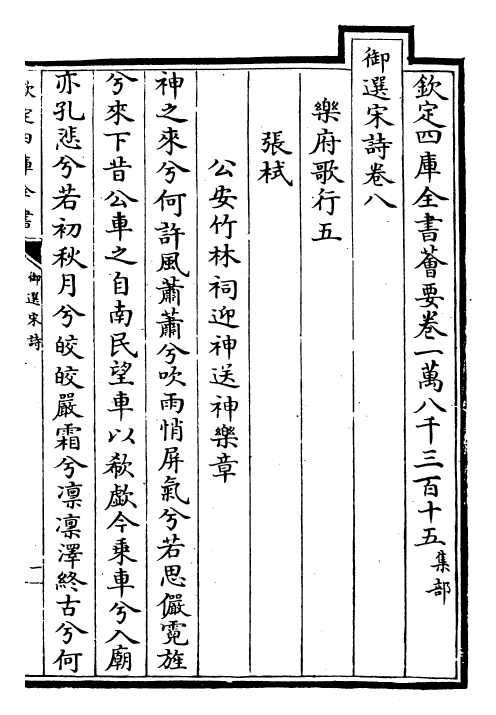 欽定四庫全書薈要卷一萬八千三百十五集部
御選宋詩卷八
樂府歌行五
張栻
公安竹林祠迎神送神樂章
神之來兮何許風蕭蕭兮吹雨悄屏氣兮若思儼霓旌
兮來下昔公車之自南民望車以欷歔今乗車兮入廟
亦孔悲兮若初秋月兮皎皎嚴霜兮凛凛澤終古兮何
欽定四庫全書
御選宋詩
一